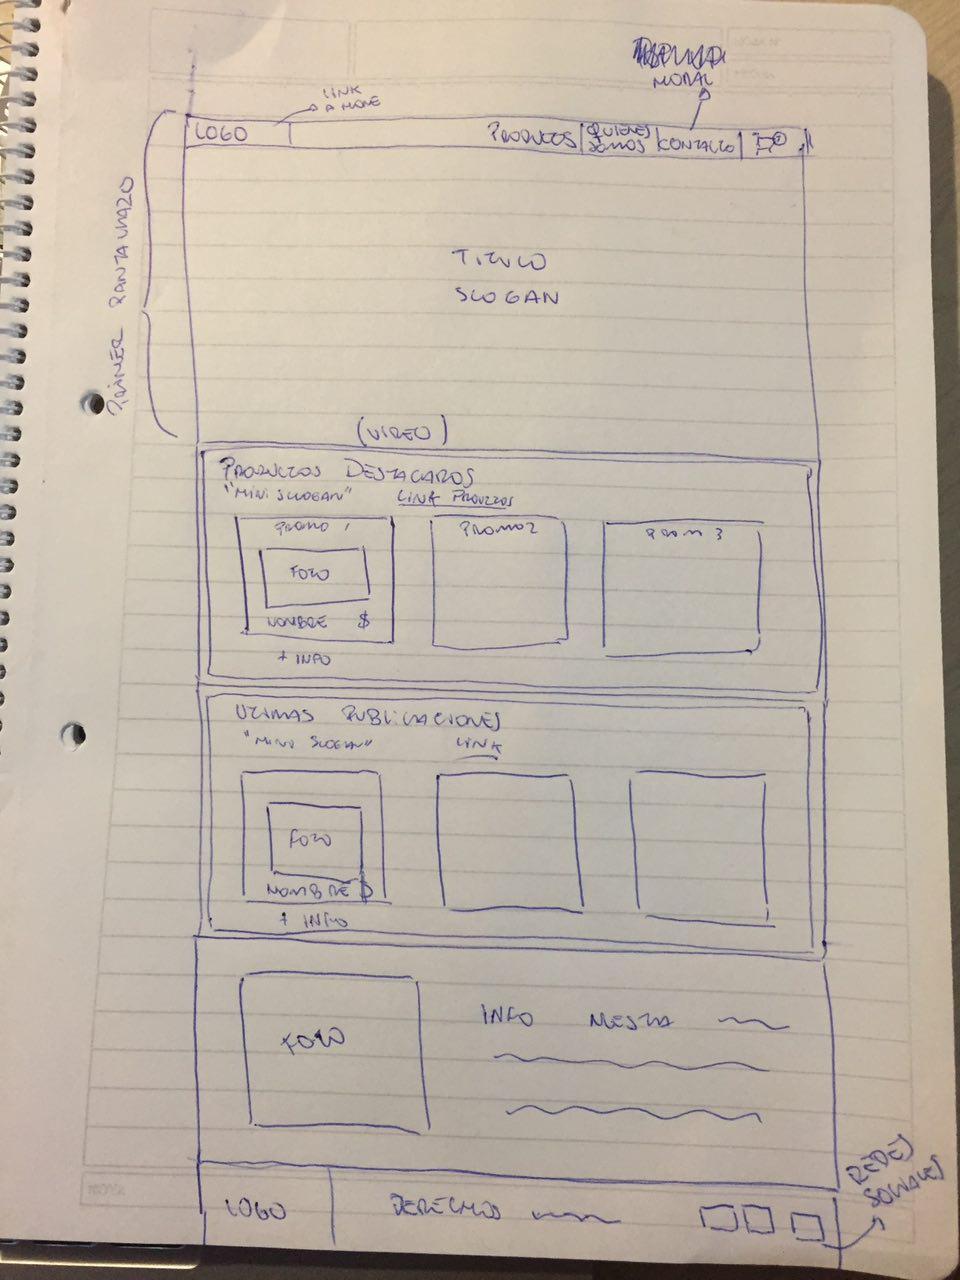 MODAL
LINK
A HOME
LOGO
PRODUCTOS
QUIENES
SOMOS
CONTACTO
PRIMER PANTALLAZO
TITULO
SLOGAN
(VIDEO)
PRODUCTOS DESTACADOS
"MINI SLOGAN" LINK PRODUCTOS
PROMO 1
PROMO 2
PROM 3
FOTO
NOMBRE $
+ INFO
ULTIMAS PUBLICACIONES
"MINI SLOGAN" LINK
FOTO
NOMBRE $
+ INFO
FOTO
INFO NUESTRA
REDES
SOCIALES
LOGO
DERECHOS